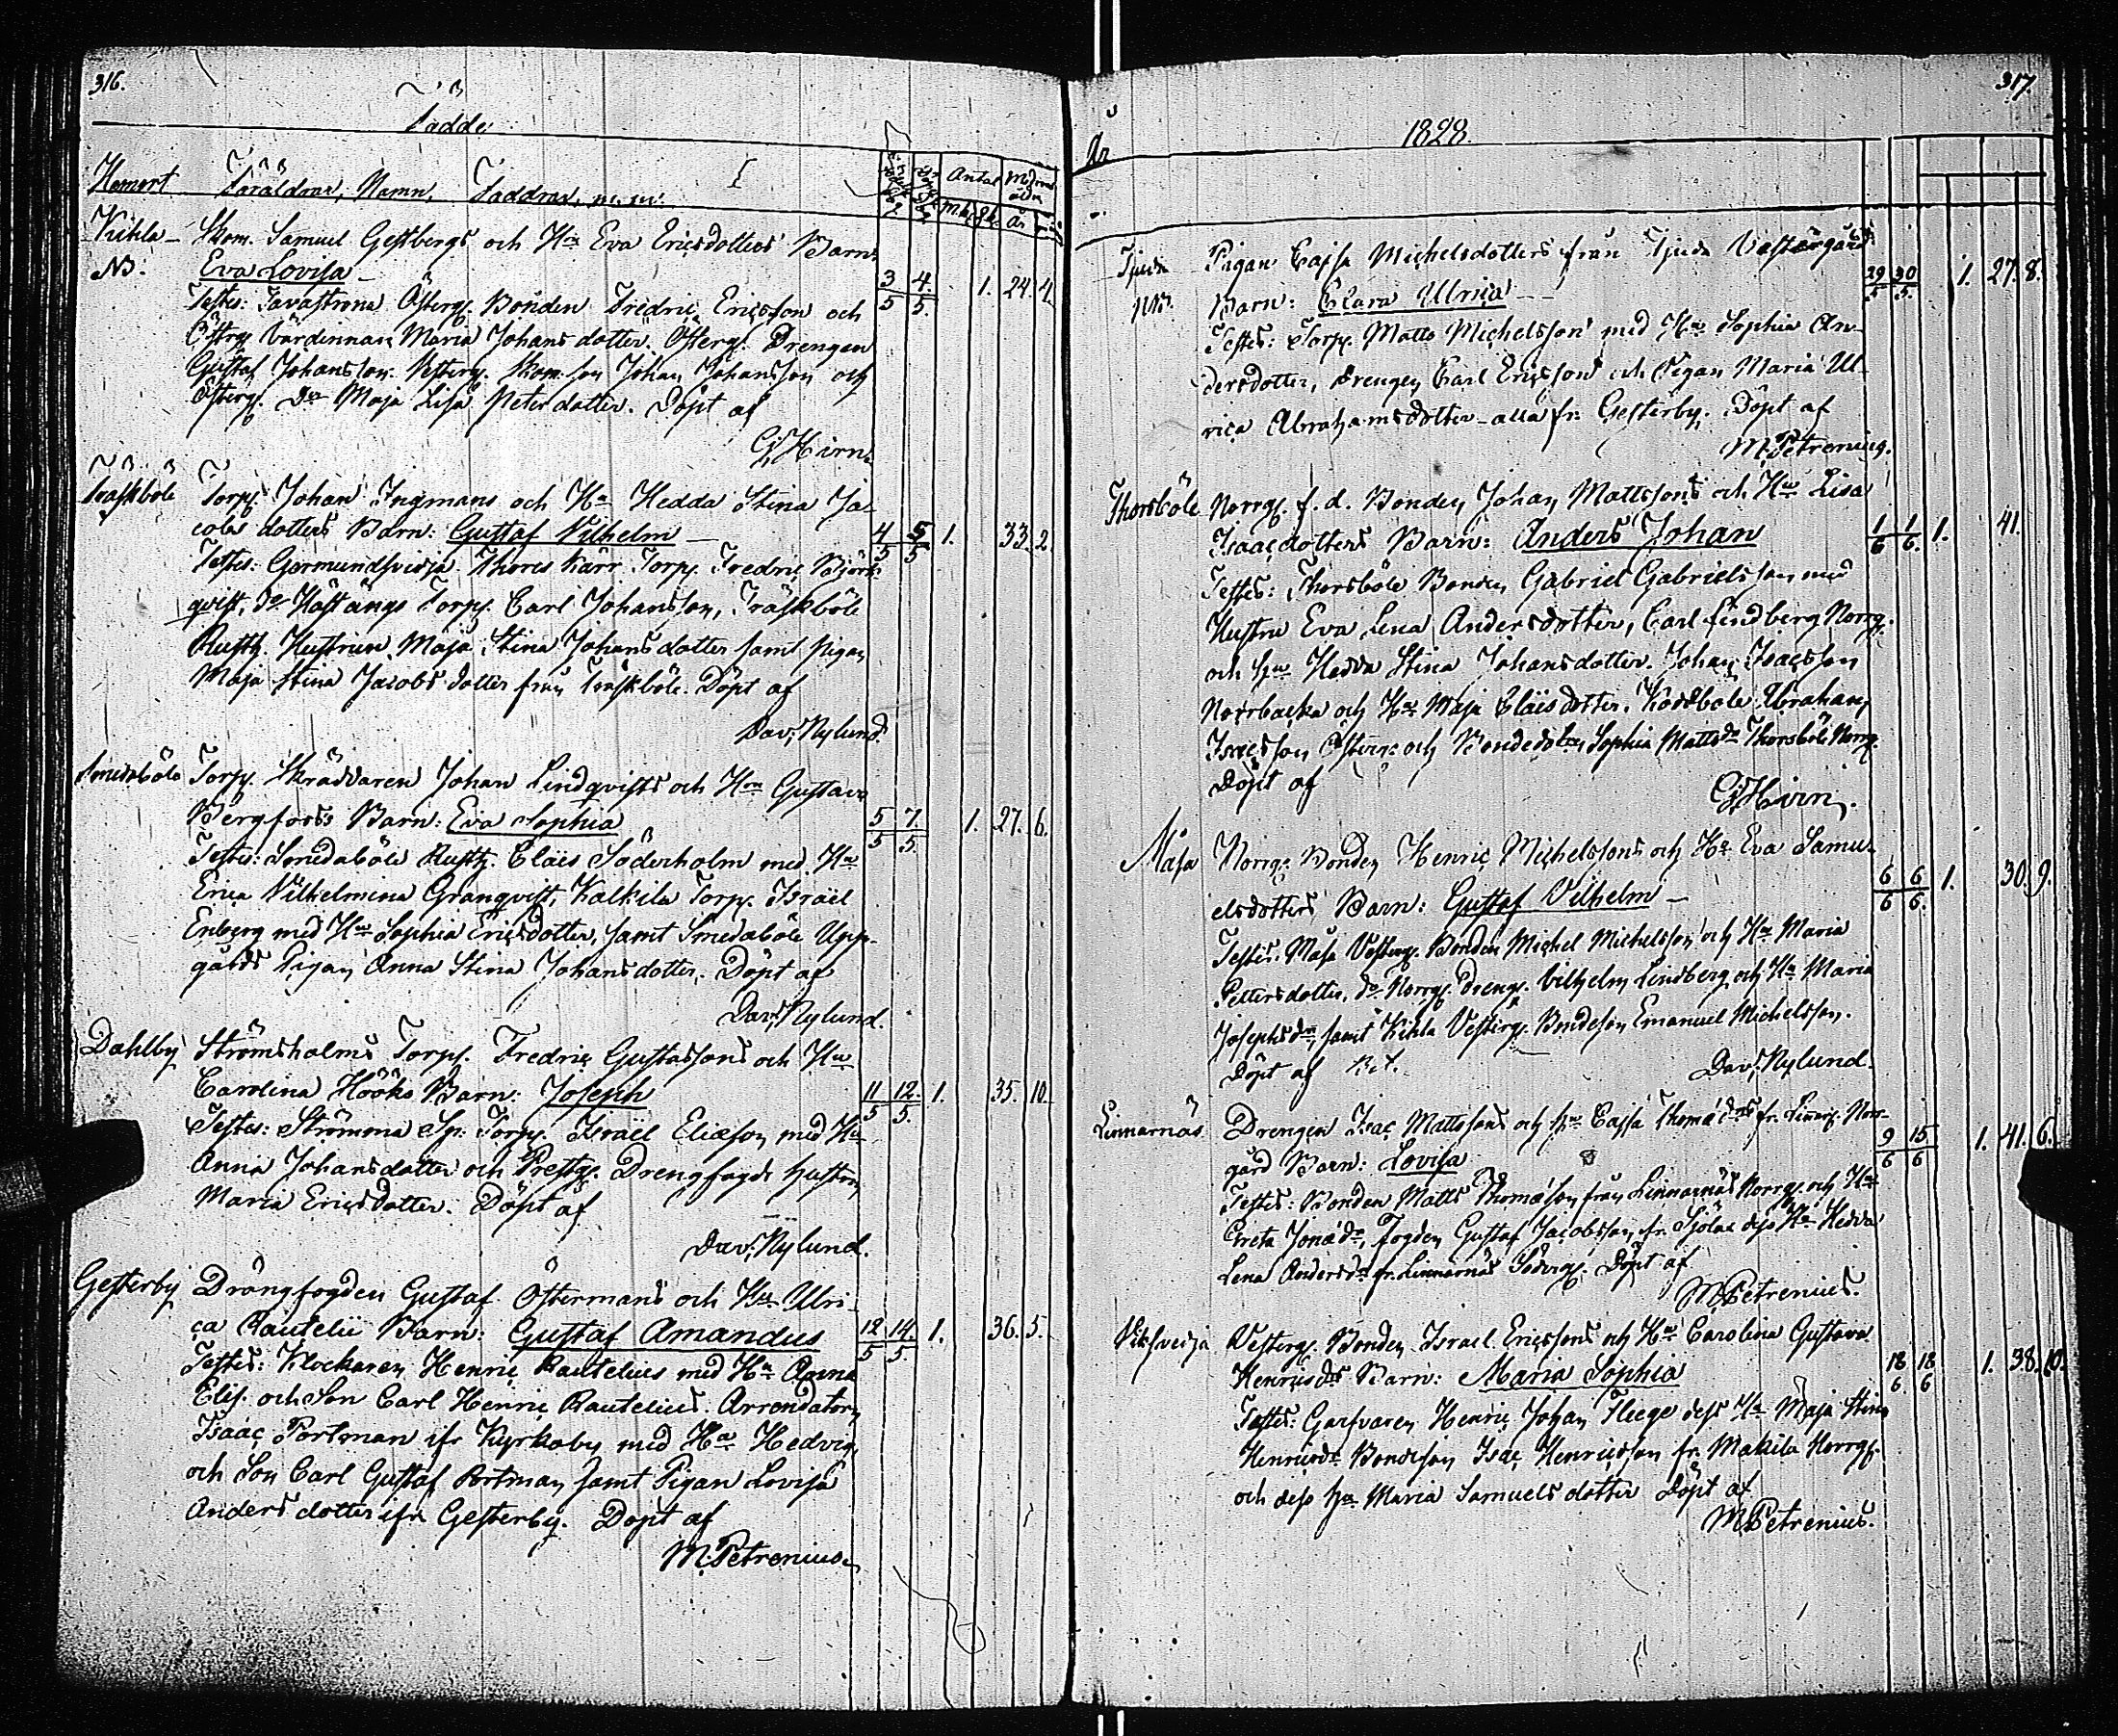 316.
Födde
Hemort Föräldrar, Namn, Faddrar, m. m.
Antal Modrens ålder
M.k. Q.k. År
Kihla Skom. Samuel Gestbergs och Hu Eva Ericsdotters Barn
No. Eva Lovisa 3/5 4/5. 1. 24. 4.
Testes: Tavastrona Österg. Bonden Fredric Ericsson och
Österg. Värdinnan Maria Johansdotter. Österg. Drengen
Gustaf Johansson. Vesterg. Skom. son Johan Johansson och
Österg. Dr Maja Lisa Petersdotter. Döpt af
Gj Hirn.
Träskböle Torp. Johan Ingmans och Hu Hedda Stina Ja-
cobs dotters Barn: Gustaf Vilhelm 4/5 5/5 1. 33. 2.
Testes: Germundsvedja Thores Kärr Torp. Fredric Björk-
qvist, do Hästängs Torp. Carl Johansson, Träskböle
Rusth. Hustrun Maja Stina Johansdotter samt Pigan
Maja Stina Jacobs dotter från Träskböle. Döpt af
Dav. Nylund.
Smedaböle Torp. Skräddaren Johan Lindqvists och Hu Gustava
Bergfors's Barn: Eva Sophia 5/5 7/5. 1. 27. 6.
Testes: Smedaböle Rusth. Claës Söderholm med Hu
Erica Vilhelmina Granqvist, Kalkila Torp. Israël
Enberg med Hu Sophia Ericsdotter, samt Smedaböle Upp-
gårds Pigan Anna Stina Johansdotter. Döpt af
Dav. Nylund.
Dahlby Strömsholms Torp. Fredric Gustafssons och Hu
Carolina Hööks Barn: Joseph 11/5 12/5. 1. 35. 10.
Testes: Strömma Sp. Torp. Israël Eliæson med Hu
Anna Johansdotter och Prestg. Drengfogds hustru
Maria Ericsdotter. Döpt af
Dav. Nylund.
Gesterby Drängfogden Gustaf Östermans och Hu Ulri-
ca Rautelii Barn: Gustaf Amandus 12/5 14/5. 1. 36. 5.
Testes: Klockaren Henric Rautelius med Hu Anna
Elis. och Son Carl Henric Rautelius. Arrendatorn
Isaac Portman ifr Kyrkoby med Hu Hedvig
och Son Carl Gustaf Portman samt Pigan Lovisa
Anders dotter ifr Gesterby. Döpt af
M. Petrenius.
317.
År 1828.
Tjuda Pigan Cajsa Michelsdotters från Tjuda Västergård
Barn: Clara Ulrica 29/5 30/5. 1. 27. 8.
Testes: Torp. Matts Michelsson med Hu Sophia An-
dersdotter, Drengen Carl Ericsson och Pigan Maria Ul-
rica Abrahamsdotter alla fr. Gesterby. Döpt af
M. Petrenius.
Thorsböle Norrg. f. d. Bonden Johan Mattssons och Hu Lisa
Isaacdotters Barn: Anders Johan 1/6 1/6. 1. 41.
Testes: Thorsböle Bonden Gabriel Gabrielsson med
Hustru Eva Lena Andersdotter, Carl Lindberg Norrg.
och Hu Hedda Stina Johansdotter. Johan Isacsson
Norrbacka och Hu Maja Claësdotter. Abraham
Isacsson Österg. och Sophia Matts dr Thorsböle Norrg.
Döpt af
Gj Hirn.
Måsa Norrg. Bonden Henric Michelssons och Hu Eva Samu-
elsdotters Barn: Gustaf Vilhelm 6/6 6/6. 1. 30. 9.
Testes: Måsa Vesterg. Bonden Michel Michelsson och Hu Maria
Pettersdotter, do Norrg. Dreng. Vilhelm Lindberg och Hu Maria
Josephsdr samt Kihla Vesterg. Bondeson Emanuel Michelsson.
Döpt af
Dav. Nylund.
Linnarnäs Drengen Isac Mattssons och Hu Cajsa Thomædrs fr. Norr-
gård Barn: Lovisa 9/6 15/6 1. 41. 6.
Testes: Bonden Matts Thomæson från Linnarnäs Norrg. och Hu
Greta Jonædr, Fogden Gustaf Jacobsson fr. Sjölax dess Hu Hedda
Lena Andersdr fr. Linnarnäs Söderg. Döpt af
M. Petrenius.
Viksvedja Vesterg. Bonden Israel Ericssons och Hu Carolina Gustava
Henricsdrs Barn: Maria Sophia 18/6. 18/6 1. 38. 10.
Testes: Garfvaren Henric Johan Fleege dess Hu Maja Stina
Henricsdr Bondeson Isac Henricsson fr. Makila Norrg.
och dess Hu Maria Samuels dotter Döpt af
M. Petrenius.